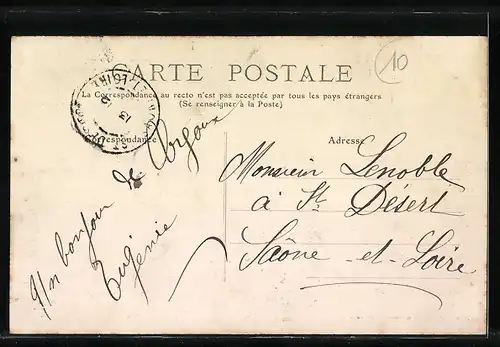 10
CARTE POSTALE
La Correspondance au recto n'est pas acceptée par tous les pays étrangers
(Se renseigner à la Poste)
Correspondance
Adresse
bonjour de
Eugénie
Monsieur Lenoble
à St. Désert
Saône-et-Loire